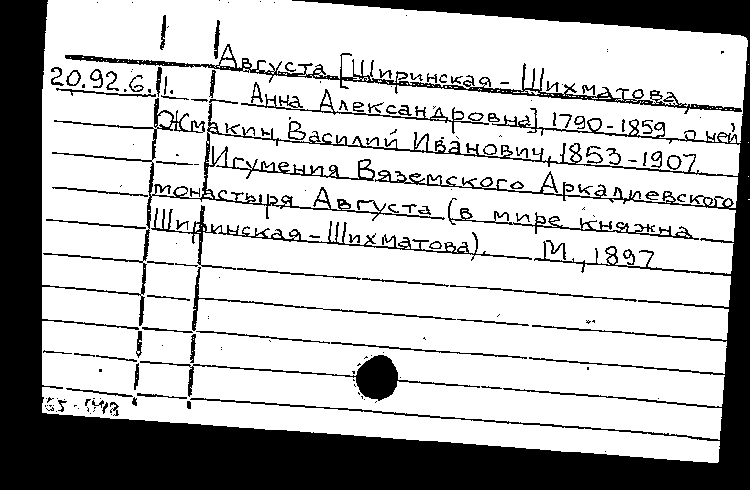 Августа [Ширинская-Шихматова,
20.92.6.11. Анна Александровна], 1790-1859, о ней
Жмакин, Василий Иванович, 1853-1907
Игумения Вяземского Аркадиевского
монастыря Августа (в мире княжна
Ширинская-Шихматова). М., 1897